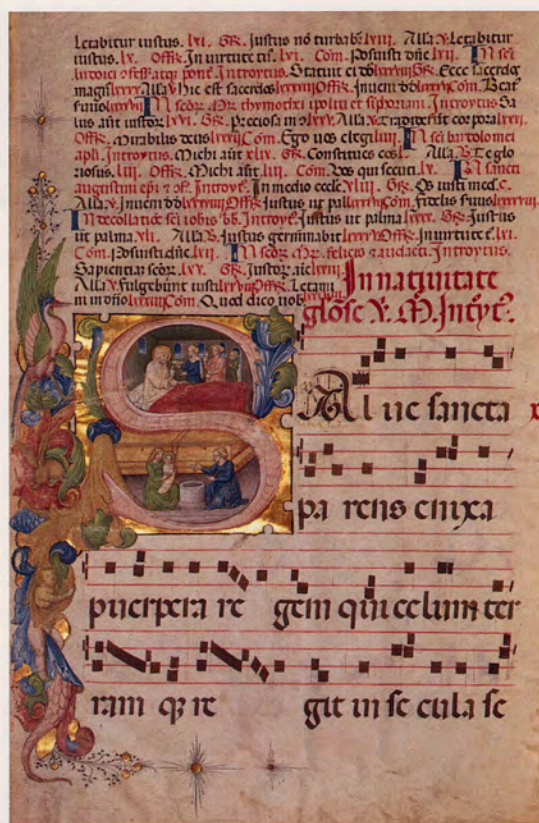 letabitur iustus. lxi. Gr. Justus nō turbabit lviii. Alla. V. Letabitur
iustus. lx. Off. In uirtute tua. lvi. Com. Posuisti dñe lxii. In sci
atqz ponť. Introytus. Statuit ei dñs Gr. Ecce sacerdos
magis Alla V. hic est sacerdos Off. Inueni dd Com. Beat
In Mr thymothei ipoliti et Introytus. Sa
lus aūt iustor lxvi. Gr. Preciosa in Alla. V. Tradiderūt corpora
Off. Mirabilis deus Com. Ego uos elegi In sci bartolomei
apli. Introytus. Michi aūt xlix. Gr. Constitues eos l. Alla. V. Te glo
riosus. liii. Off. Michi aūt. liii. Com. Vos qui secuti. lv. In sancti
augustini epi Introyt. In medio eccle. xliii. Gr. Os iusti med. c.
Alla. V. Inueni dd Off. Justus ut pal Com. Fidelis
In decollatiōe sci iohis bb. Introyt. Justus ut palma Gr. Justus
ut palma. xli. Alla. V. Justus germinabit Off. In uirtute t. lxi.
Com. Posuisti dñe. lxii. In felicis audacti. Introytus.
Sapientia lxv. Gr. Justor aīe
Alla. V. Fulgebūnt iusti Off. Letami
ni in dño Com. Quod dico uob
In natiuitate
glose V. M. Intyt.
SAl ue sancta
pa rens enixa
puerpera re gem qui celum ter
ram qz re git in se cula se